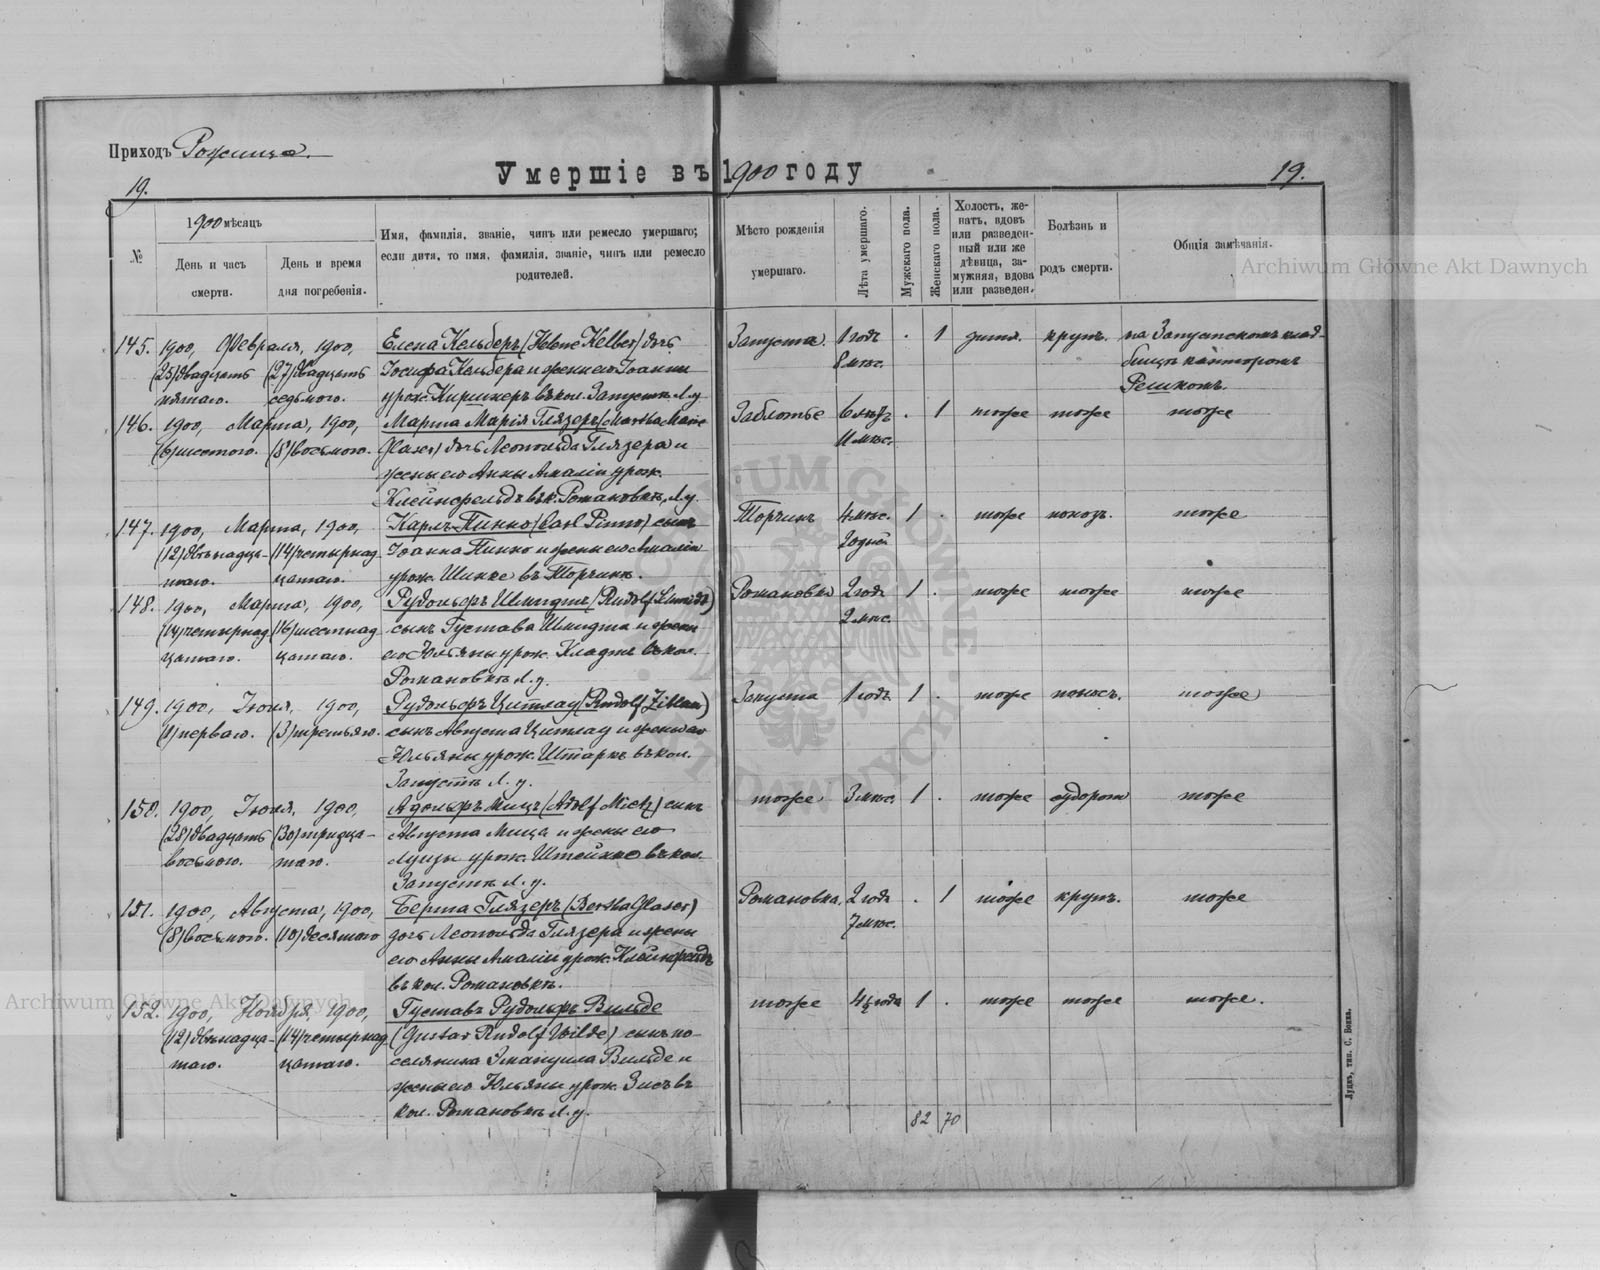 Приходъ Рожище.
19.
Умершіе въ 1900 году
19.
№
1900 мѣсяцъ
День и часъ смерти.
День и время дня погребенія.
Имя, фамилія, званіе, чинъ или ремесло умершаго; если дитя, то имя, фамилія, званіе, чинъ или ремесло родителей.
Мѣсто рожденія умершаго.
Лѣта умершаго.
Мужскаго пола.
Женскаго пола.
Холостъ, женатъ, вдовъ или разведенный или же дѣвица, замужняя, вдова или разведен.
Болѣзнь и родъ смерти.
Общія замѣчанія.
Archiwum Główne Akt Dawnych
145. 1900, Февраля, 1900, Елена Кельберъ (Helene Kelber) дочь Запуста. 1 годъ . 1 дитя. крупъ. на Запустскомъ клад-
(25) двадцать (27) двадцать Іосифа Кельбера и жены его Іоанны 8 мѣс. бищѣ канторомъ
пятаго. седьмого. урож. Киршнеръ въ кол. Запустѣ Л. у. Решкомъ.
146. 1900, Марта, 1900, Марта Марія Глязеръ (Martha Marie Заблотье 6 лѣтъ . 1 тоже тоже тоже
(6) шестого. (8) восьмого. Glaser) дочь Леопольда Глязера и 11 мѣс.
жены его Анны Амаліи урож.
Клейнфельдъ въ к. Романовкѣ, Л. у.
147. 1900, Марта, 1900, Карлъ Пинно (Carl Pinno) сынъ Торчинъ 4 мѣс. 1 . тоже тоже
(12) двѣнадца- (14) четырнад Іоанна Пинно и жены его Амаліи
таго. цатаго. урож. Шинке въ Торчинѣ.
148. 1900, Марта, 1900, Рудольфъ Шмидтъ (Rudolf Schmidt) Романовка 2 года 1 . тоже тоже тоже
(14) четырнад (16) шестнад сынъ Густава Шмидта и жены 2 мѣс.
цатаго. цатаго. его Юльяны урож. въ кол.
Романовкѣ Л. у.
149. 1900, Іюня, 1900, Рудольфъ Цитлау (Rudolf Zittlau) Запуста 1 годъ 1 . тоже тоже
(1) перваго. (3) третьяго. сынъ Августа Цитлау и жены его
Юльяны урож. Штаркъ въ кол.
Запустѣ Л. у.
150. 1900, Іюня, 1900, Адольфъ Мицъ (Adolf Mietz) сынъ тоже 3 мѣс. 1 . тоже судороги тоже
(28) двадцать (30) тридца- Августа Мица и жены его
восьмого. таго. Луизы урож. Штейнке въ кол.
Запустѣ Л. у.
151. 1900, Августа, 1900, Берта Глязеръ (Bertha Glaser) Романовка, 2 года . 1 тоже крупъ. тоже
(8) восьмого. (10) десятаго дочь Леопольда Глязера и жены 7 мѣс.
его Анны Амаліи урож. Клейнфельдъ
въ кол. Романовкѣ.
152. 1900, Ноября, 1900, Густавъ Рудольфъ Вильде тоже 1 . тоже тоже тоже.
(12) двѣнадца- (14) четырнад (Gustav Rudolf Wilde) сынъ по-
таго. цатаго. селянина Эмануила Вильде и
жены его Юльяны урож. въ
кол. Романовкѣ Л. у.
82 70
Луцкъ, тип. С. Бонка.
Archiwum Główne Akt Dawnych
ARCHIWUM GŁÓWNE AKT DAWNYCH